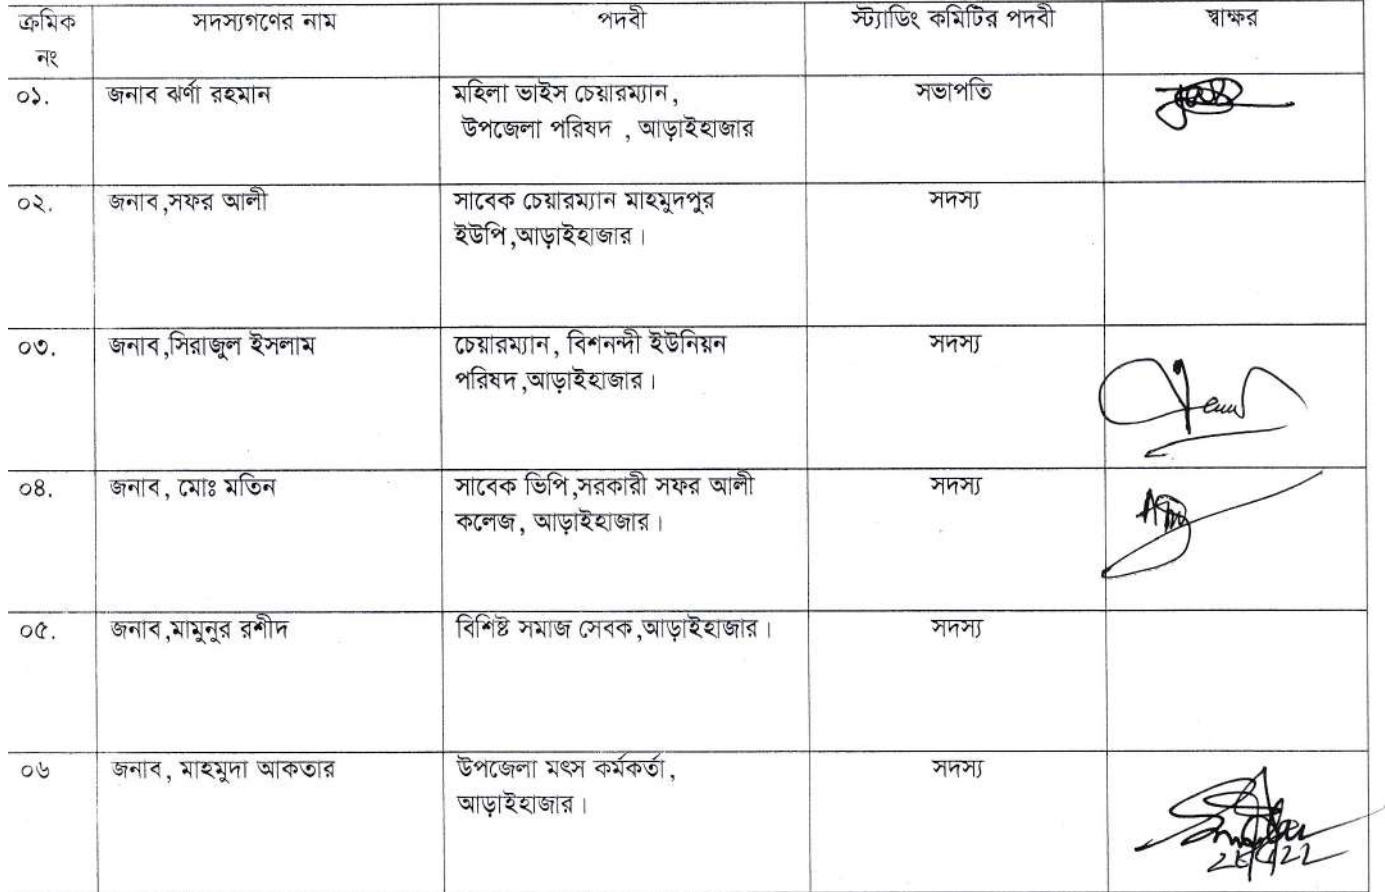 ক্রমিক নং সদস্যগণের নাম পদবী স্ট্যাডিং কমিটির পদবী স্বাক্ষর
০১. জনাব ঝর্ণা রহমান মহিলা ভাইস চেয়ারম্যান, সভাপতি
উপজেলা পরিষদ , আড়াইহাজার
০২. জনাব,সফর আলী সাবেক চেয়ারম্যান মাহমুদপুর সদস্য
ইউপি,আড়াইহাজার।
০৩. জনাব,সিরাজুল ইসলাম চেয়ারম্যান, বিশনন্দী ইউনিয়ন সদস্য
পরিষদ,আড়াইহাজার।
০৪. জনাব, মোঃ মতিন সাবেক ভিপি,সরকারী সফর আলী সদস্য
কলেজ, আড়াইহাজার।
০৫. জনাব,মামুনুর রশীদ বিশিষ্ট সমাজ সেবক,আড়াইহাজার। সদস্য
০৬ জনাব, মাহমুদা আকতার উপজেলা মৎস কর্মকর্তা, সদস্য
আড়াইহাজার।